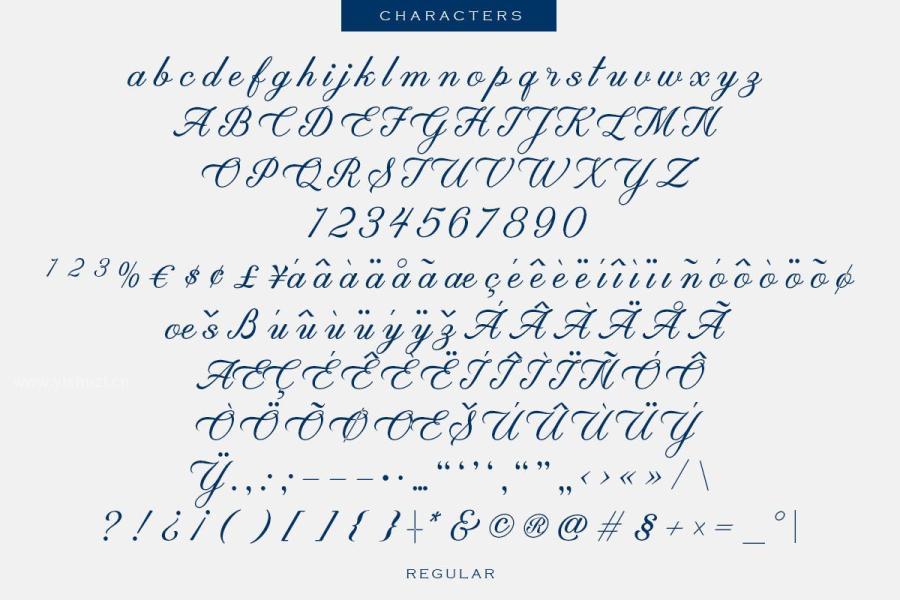 CHARACTERS
a b c d e f g h i j k l m n o p q r s t u v w x y z
A B C D E F G H I J K L M N
O P Q R S T U V W X Y Z
1 2 3 4 5 6 7 8 9 0
1 2 3 % € $ ¢ £ ¥ á â à ä å ã æ ç é ê è ë í î ì ï ı ñ ó ô ò ö õ ø
œ š ß ú û ù ü ý ÿ ž Á Â À Ä Å Ã
Æ Ç É Ê È Ë Í Î Ì Ï Ñ Ó Ô
www.yishuzi.cn
Ò Ö Õ Ø Œ Š Ú Û Ù Ü Ý
Ÿ . , : ; - – — • · … “ ‘ ’ ‘ ‚ “ ” „ ‹ › « » / \
? ! ¿ ¡ ( ) [ ] { } † * & © ® @ # § + × = _ ° |
REGULAR